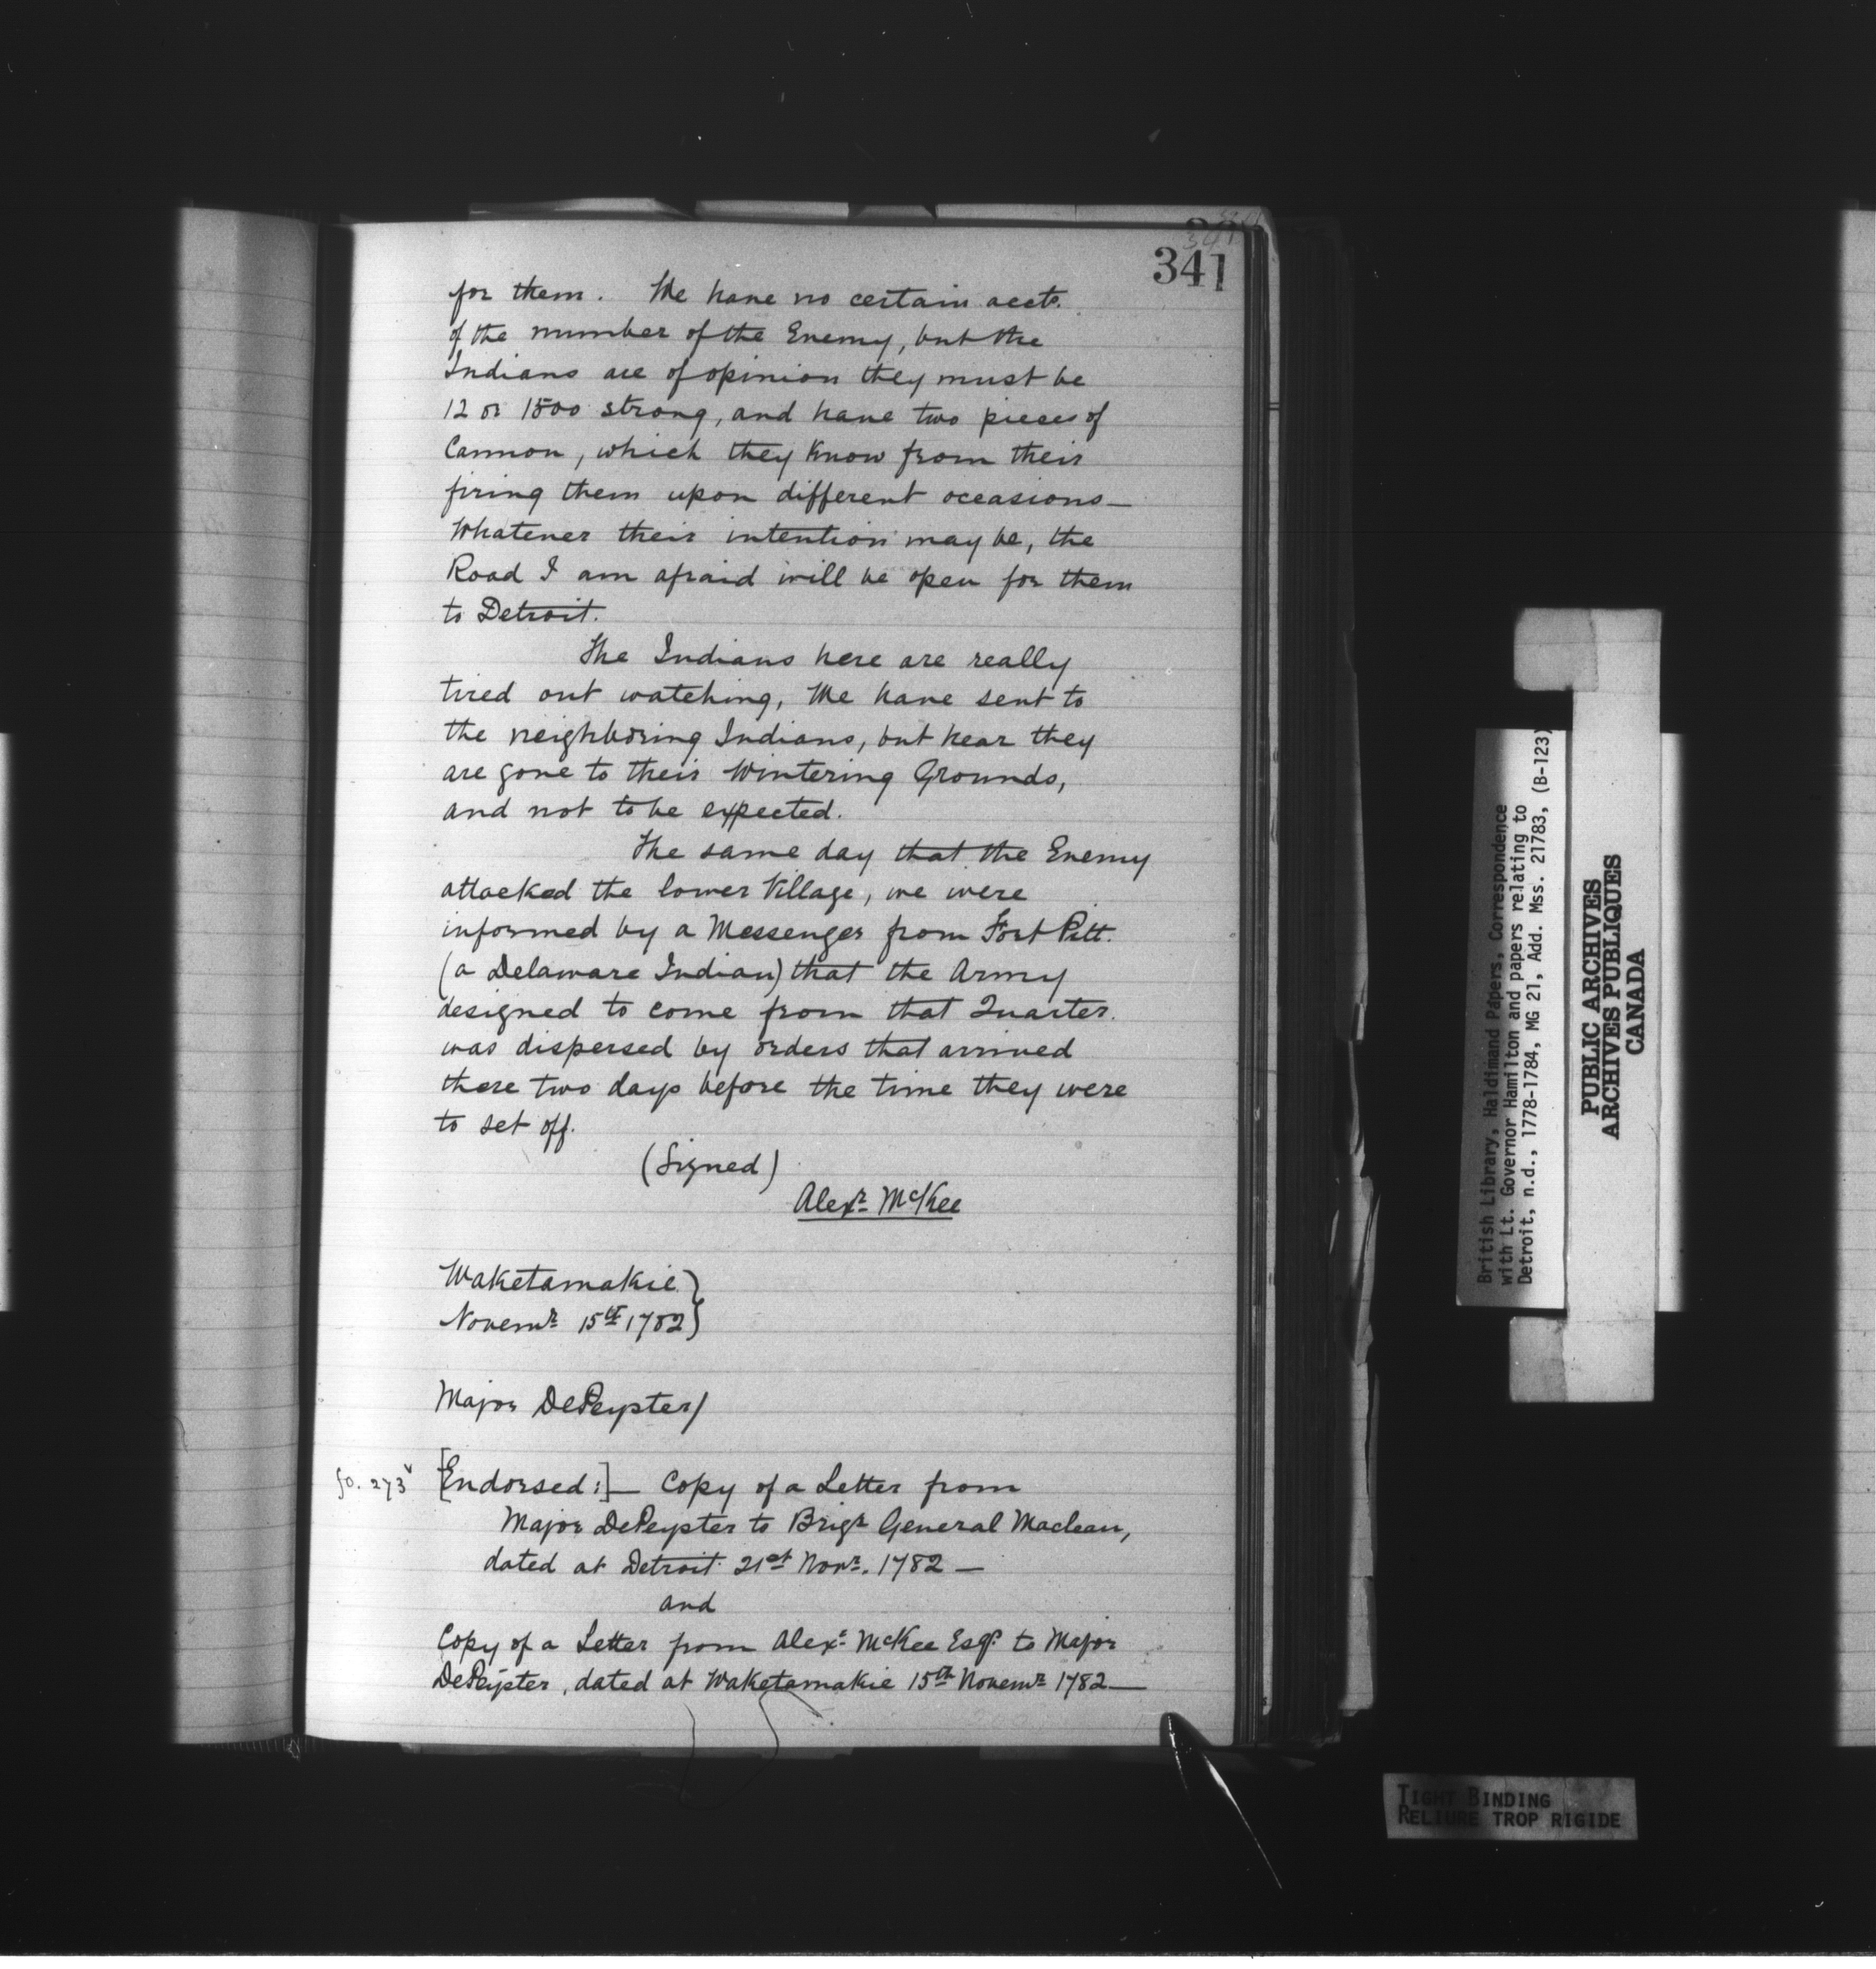 341
for them. We have no certain acct.
of the number of the Enemy, but the
Indians are of opinion they must be
12 or 1500 strong, and have two pieces of
Cannon, which they know from their
firing them upon different occasions—
Whatever their intention may be, the
Road I am afraid will be open for them
to Detroit.
The Indians here are really
tired out watching, We have sent to
the neighboring Indians, but hear they
are gone to their Wintering Grounds,
and not to be expected.
The same day that the Enemy
attacked the lower Village, we were
informed by a Messenger from Fort Pitt.
(a Delaware Indian) that the Army
designed to come from that Quarter.
was dispersed by orders that arrived
there two days before the time they were
to set off.
(Signed)
Alexr. McKee
Waketamakie }
Novemr. 15th 1782 }
Major DePeyster/
fo. 273v [Endorsed:]— Copy of a Letter from
Major DePeyster to Brigr. General Maclean,
dated at Detroit 21st Novr. 1782 —
and
Copy of a Letter from Alexr. McKee Esqr. to Major
DePeyster, dated at Waketamakie 15th Novemr. 1782—
British Library, Haldimand Papers, Correspondence
with Lt. Governor Hamilton and papers relating to
Detroit, n.d., 1778-1784, MG 21, Add. Mss. 21783, (B-123)
PUBLIC ARCHIVES
ARCHIVES PUBLIQUES
CANADA
TIGHT BINDING
RELIURE TROP RIGIDE